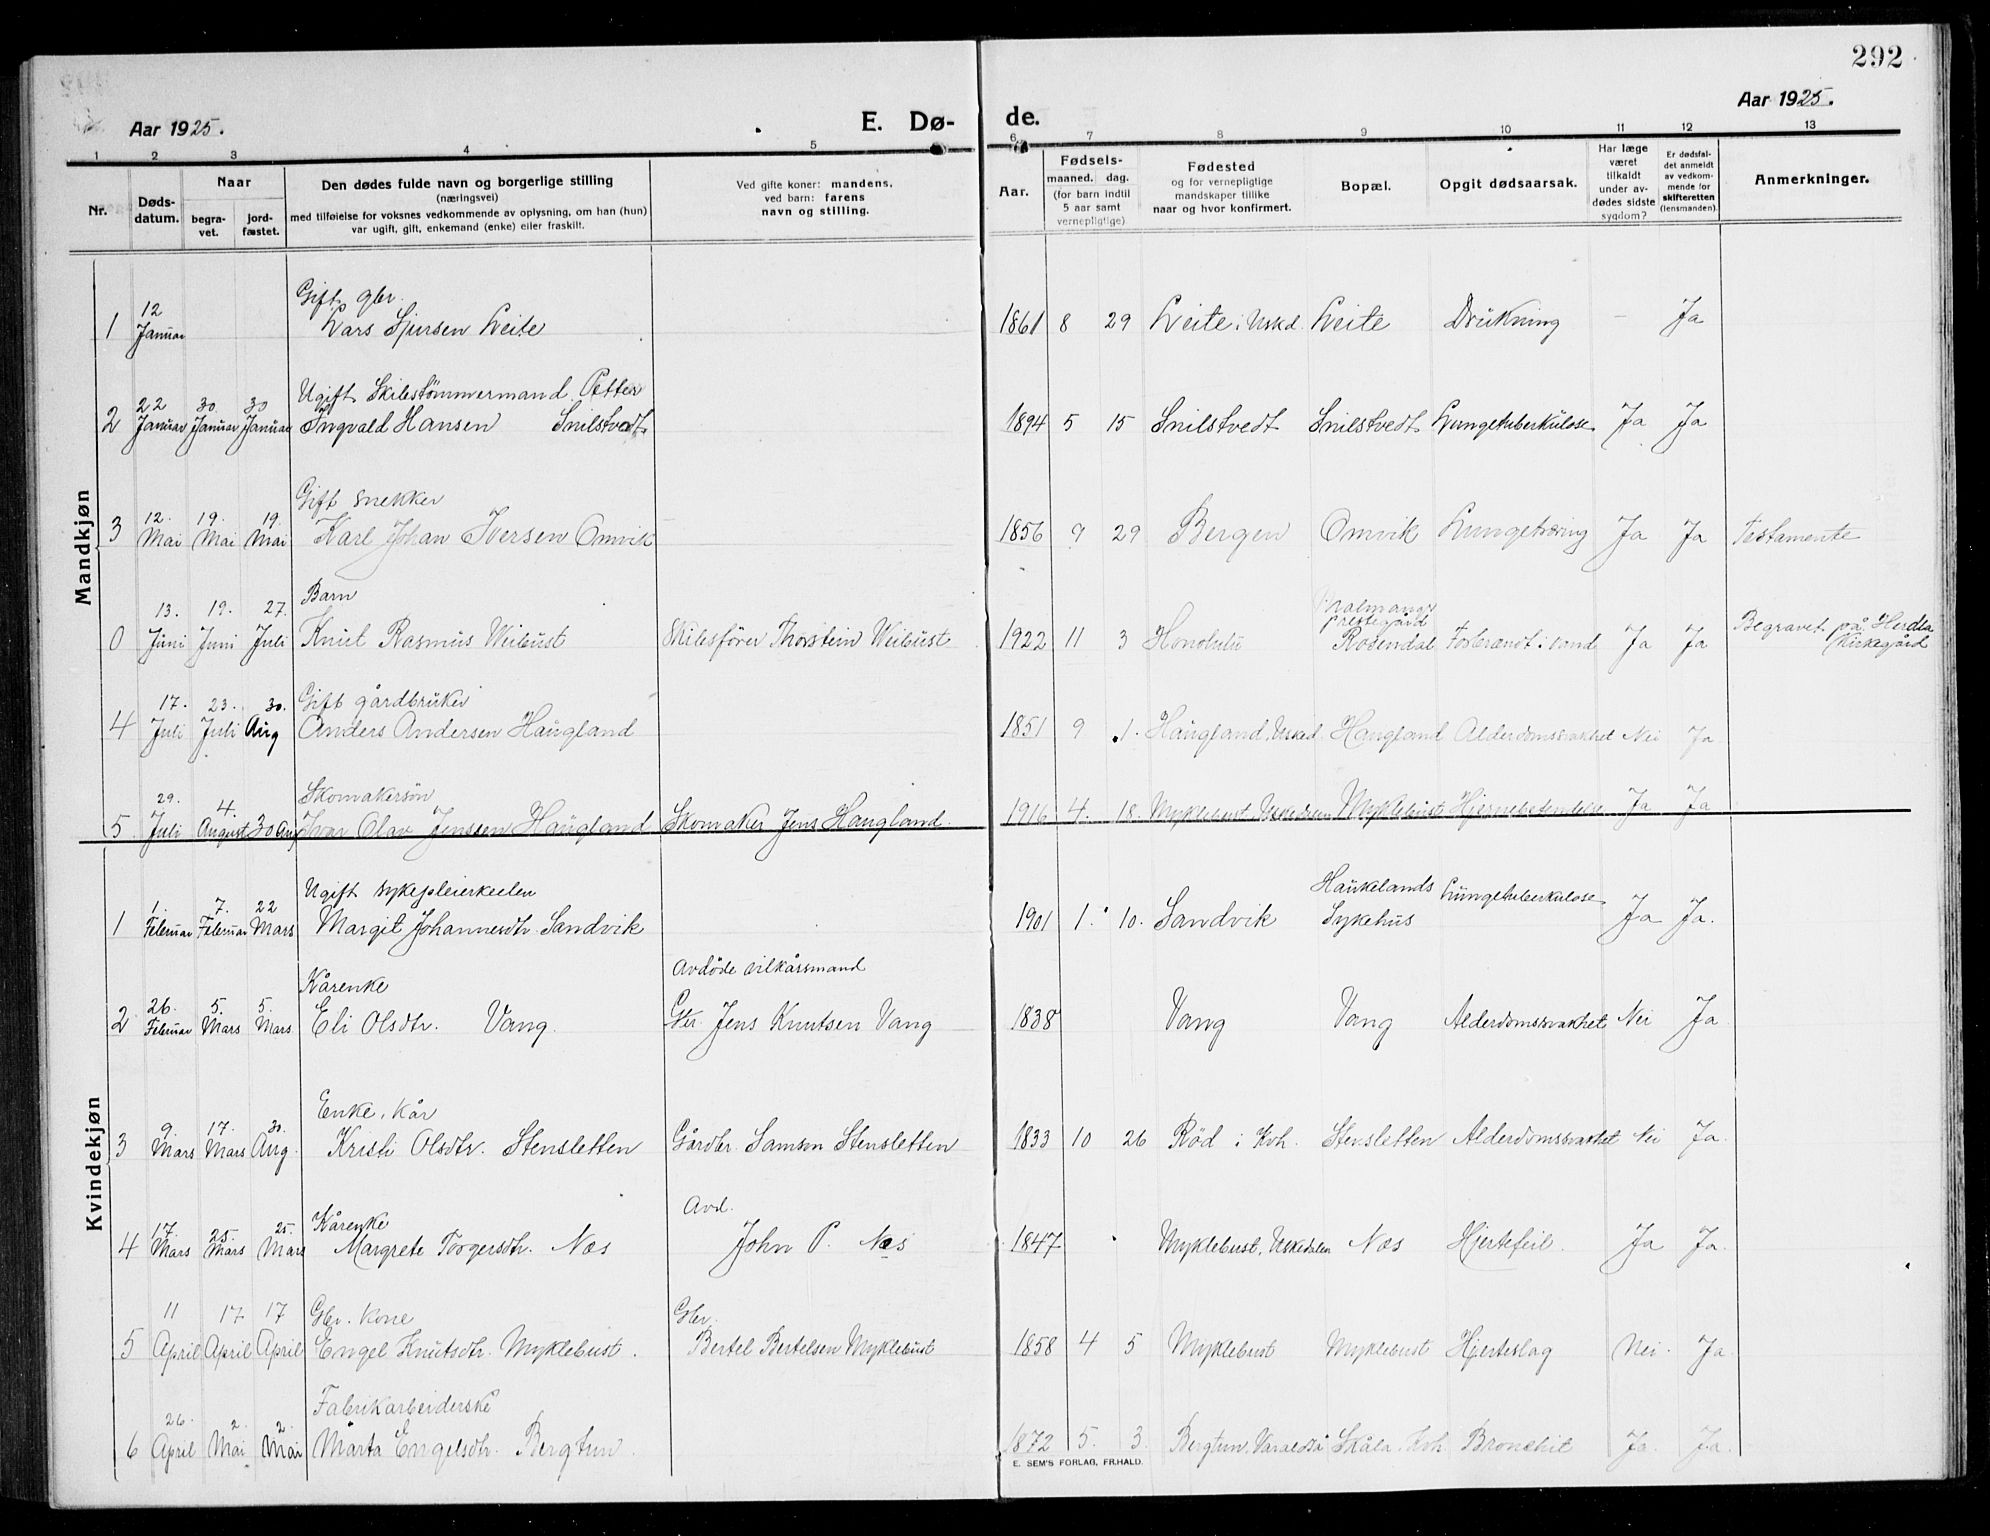 292
Aar 1925. E. Dø- de. Aar 1925.
1 2 3 4 5 6 7 8 9 10 11 12 13
Nr. Døds-datum. Naar begra-vet. jord-fæstet. Den dødes fulde navn og borgerlige stilling (næringsvei) med tilføielse for voksnes vedkommende av oplysning, om han (hun) var ugift, gift, enkemand (enke) eller fraskilt. Ved gifte koner: mandens, ved barn: farens navn og stilling. Aar. Fødsels- maaned. dag. (for barn indtil 5 aar samt vernepligtige) Fødested og for vernepligtige mandskaper tillike naar og hvor konfirmert. Bopæl. Opgit dødsaarsak. Har læge været tilkaldt under av-dødes sidste sygdom? Er dødsfal-det anmeldt av vedkom-mende for skifteretten (lensmanden). Anmerkninger.
Mandkjøn
12 Gift gbr.
1 Januar Lars Sjursen Leite 1861 8 29 Leite i Uskd. Leite Drukning - Ja
22 30 30 Ugift Skibstømmermand Petter
2 Januar Januar Januar Ingvald Hansen Snilstvedt 1894 5 15 Snilstvedt Snilstvedt Lungetuberkulose Ja Ja
12. 19. 19. Gift snekker
3 Mai Mai Mai Karl Johan Iversen Omvik 1856 9 29 Bergen Omvik Lungetæring Ja Ja Testamente
13. 19. 27. Barn Malmanger prestegård
0 Juni Juni Juli Knut Rasmus Weibust Skibsfører Thorstein Weibust 1922 11 3 Honolulu Rosendal Forbrændt i vand Ja Ja Begravet på Herdla Kirkegård
17. 23. 30. Gift gårdbruker
4 Juli Juli Aug Anders Andersen Haugland 1851 9 1. Haugland, Uskd. Haugland Alderdomssvakhet Nei Ja
29. 4. Skomakersøn
5 Juli August 30 Aug Ivar Olav Jenssen Haugland Skomaker Jens Haugland. 1916 4. 18. Myklebust, Uskedalen Myklebust Hjernebetendelse Ja Ja
Kvindekjøn
1. 7. 22 Ugift sykepleierske Haukelands Lungetuberkulose
1 Februar Februar Mars Margit Johannesdtr. Sandvik 1901 1. 10. Sandvik Sykehus Ja Ja.
26. 5. 5. Kårenke Avdøde vilkårsmand
2 Februar Mars Mars Eli Olsdtr. Vang. Gbr. Jens Knutsen Vang 1838 Vang Vang Alderdomssvakhet Nei Ja
9. 17. 30. Enke, kår
3 Mars Mars Aug. Kristi Olsdtr. Stensletten Gårdbr. Samson Stensletten 1833 10 26 Rød i Kvh. Stensletten Alderdomssvakhet Nei Ja.
17. 25. 25. Kårenke Avd.
4 Mars Mars Mars Margrete Torgersdtr. Næs John P. Næs 1847 Myklebust, Uskedalen Næs Hjertefeil. Ja Ja.
11 17 17 Gbr. kone Gbr.
5 April April April Engel Knutsdtr. Myklebust. Bertel Bertelsen Myklebust 1858 4 5 Myklebust Myklebust Hjerteslag Nei. Ja.
26. 2. 2. Fabrikarbeiderske
6 April Mai Mai Marta Engelsdtr. Bergtun. 1872 5. 3. Bergtun, Varaldsø Skåla, Kvh Bronchit Ja. Ja.
E. SEM'S FORLAG, FR.HALD.